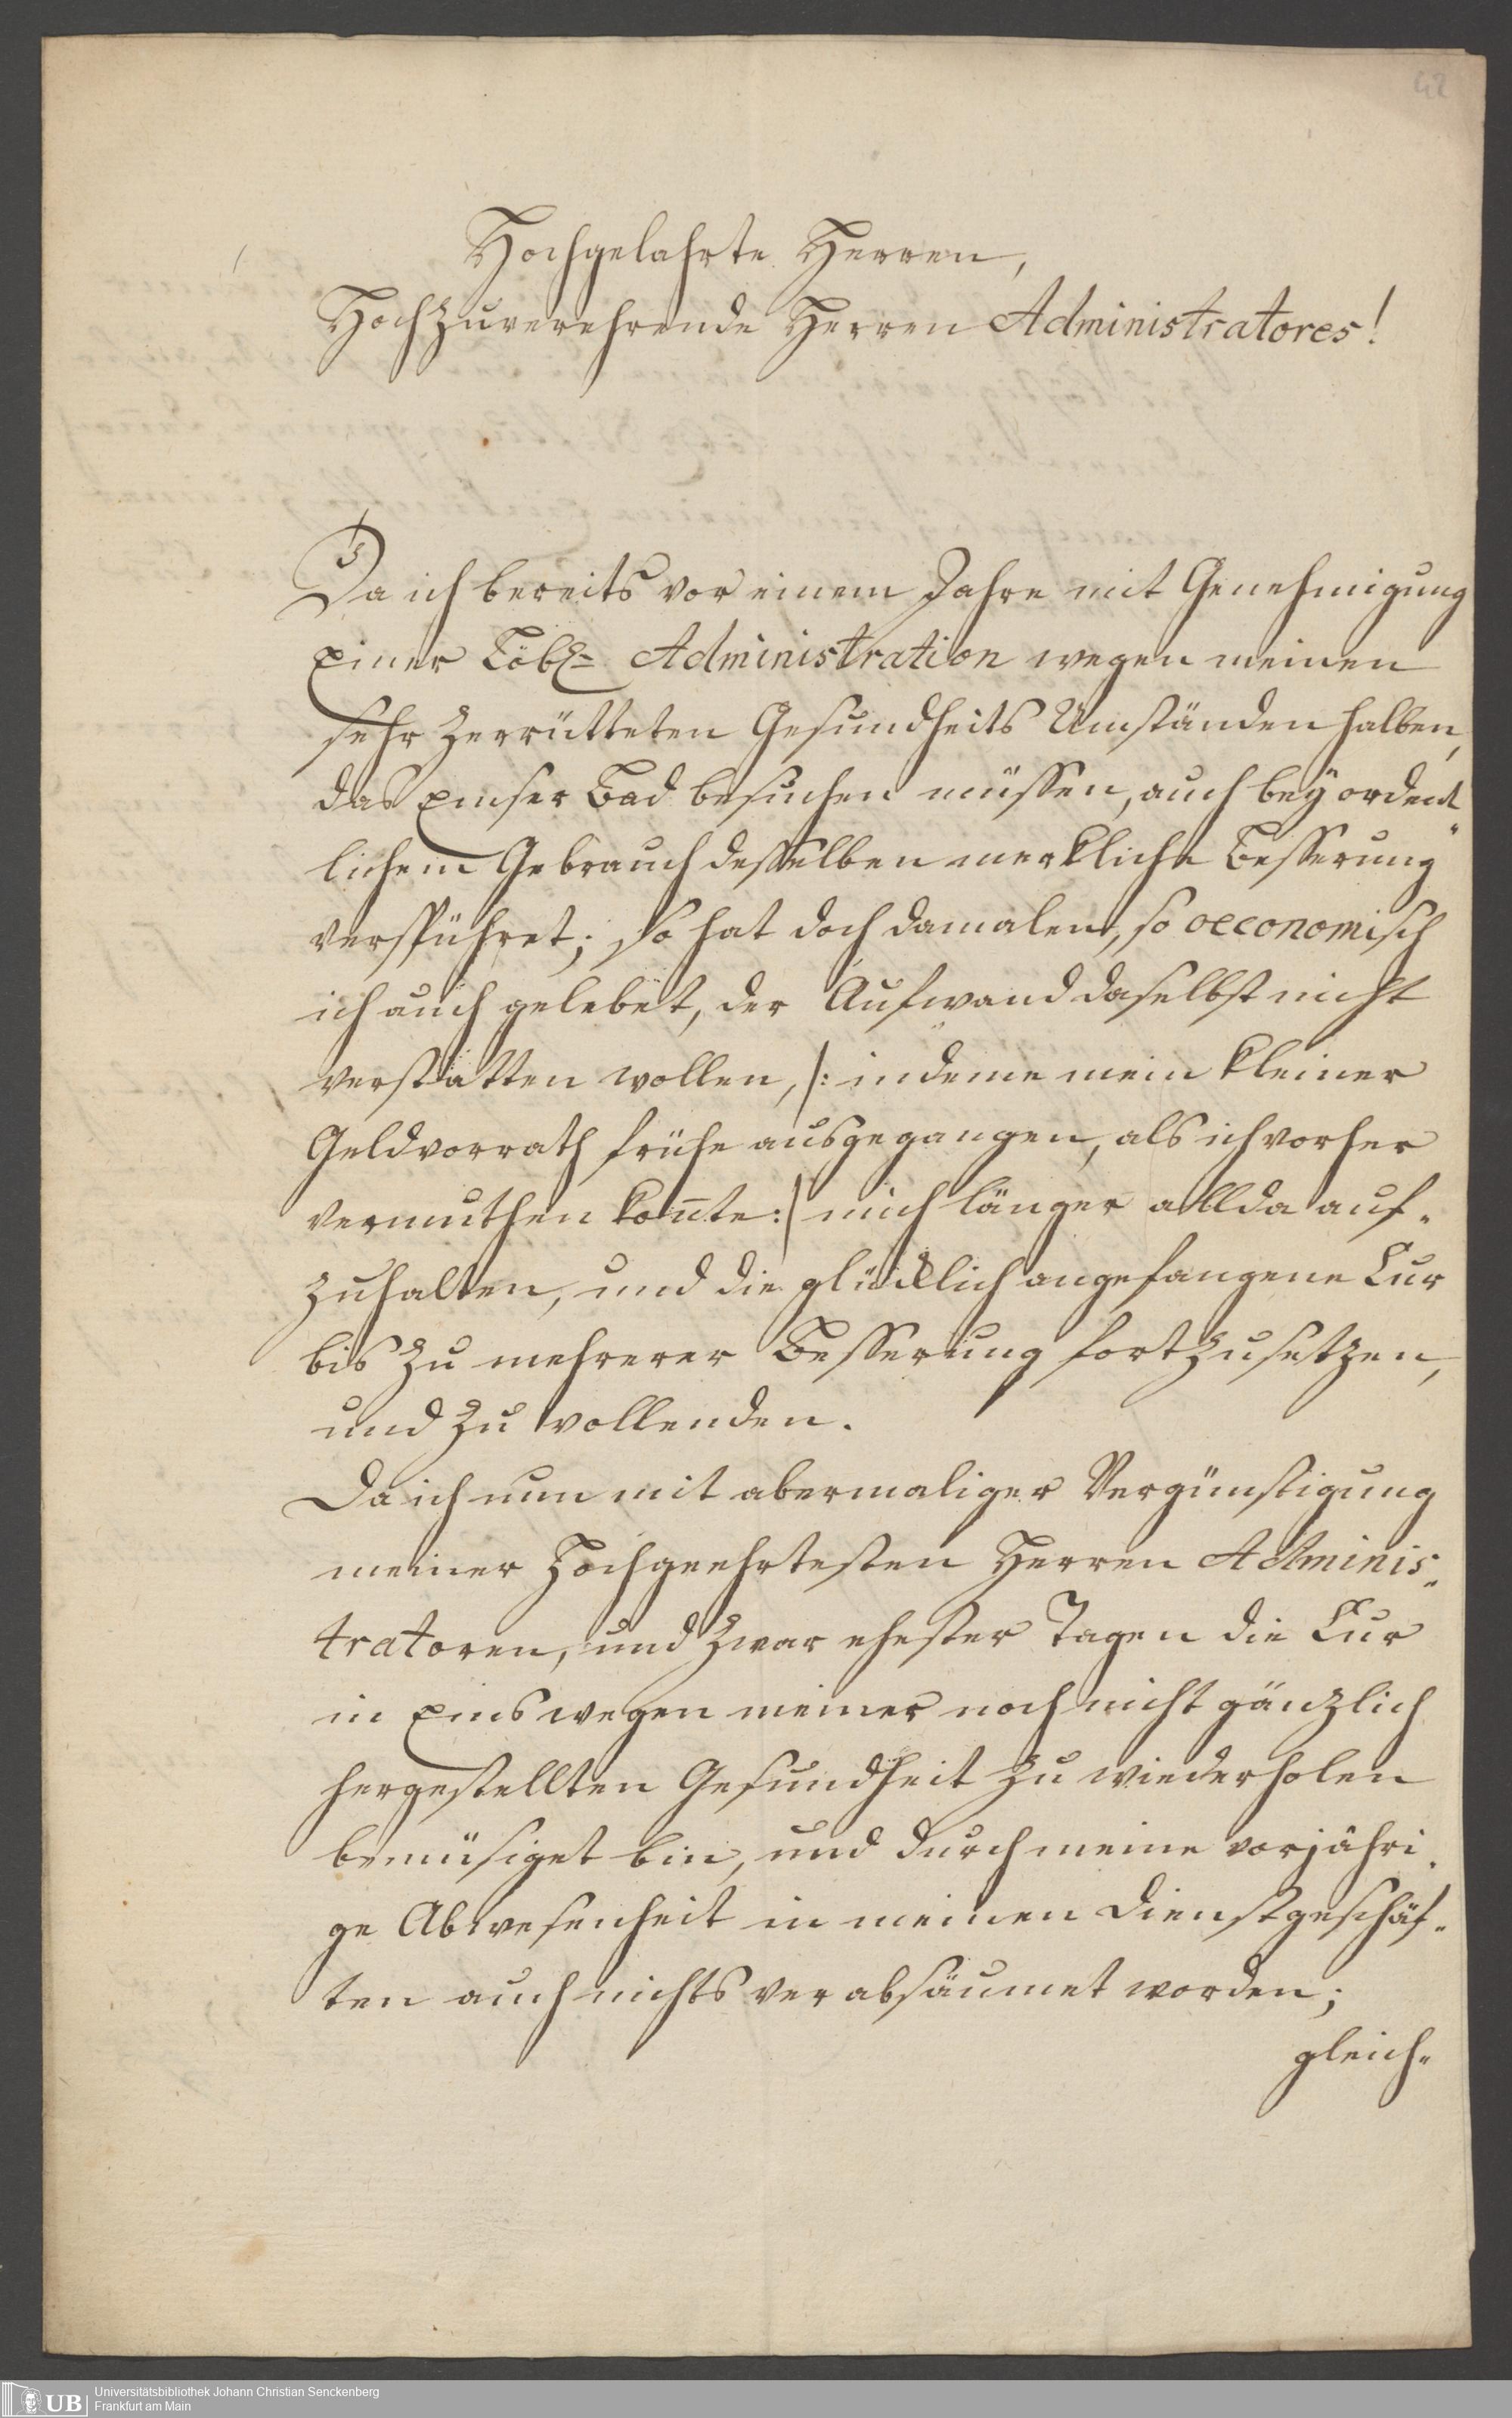 42
Hochgelahrte Herren,
Hochzuverehrende Herren Administratores!
Da ich bereits vor einem Jahre mit Genehmigung
Einer Löbl= Administration wegen meinen
sehr zerrütteten Gesundheits Umständen halben,
das Emser Bad besuchen müssen, auch beÿ ordent„
lichem Gebrauch desselben merkliche Besserung
verspühret; so hat doch damalen, so oeconomisch
ich auch gelebet, der Aufwand daselbst nicht
verstatten wollen, /: indeme mein kleiner
Geldvorrath frühe ausgegangen, als ich vorher
vermuthen kon̄te :/ mich länger allda auf„
zuhalten, und die glücklich angefangene Cur
bis zu mehrerer Besserung fortzusetzen,
und zu vollenden.
Da ich nun mit abermaliger Vergünstigung
meiner Hochgeehrtesten Herren Adminis„
tratoren, und zwar ehester Tagen die Cur
in Ems wegen meiner noch nicht gänzlich
hergestellten Gesundheit zu wiederholen
bemüsiget bin, und durch meine vorjähri„
ge Abwesenheit in meinen Dienstgeschäf„
ten auch nichts verabsäumet worden;
gleich„
UB
Universitätsbibliothek Johann Christian Senckenberg
Frankfurt am Main